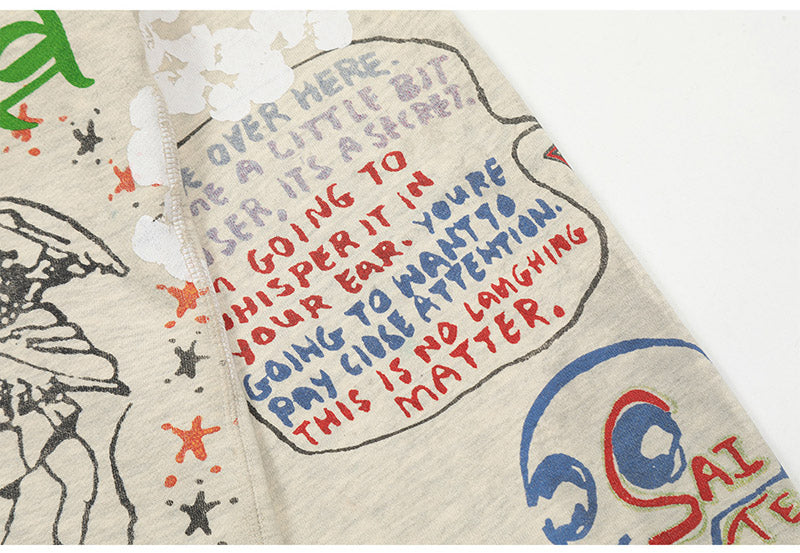 OVER HERE.
ME A LITTLE BIT
SER, ITS A SECRET.
GOING TO
WHISPER IT IN
YOUR EAR. YOURE
GOING TO WANT TO
PAY ClOSE ATTENTION.
THIS IS NO LAUGHING
MATTER.
SAI
TE